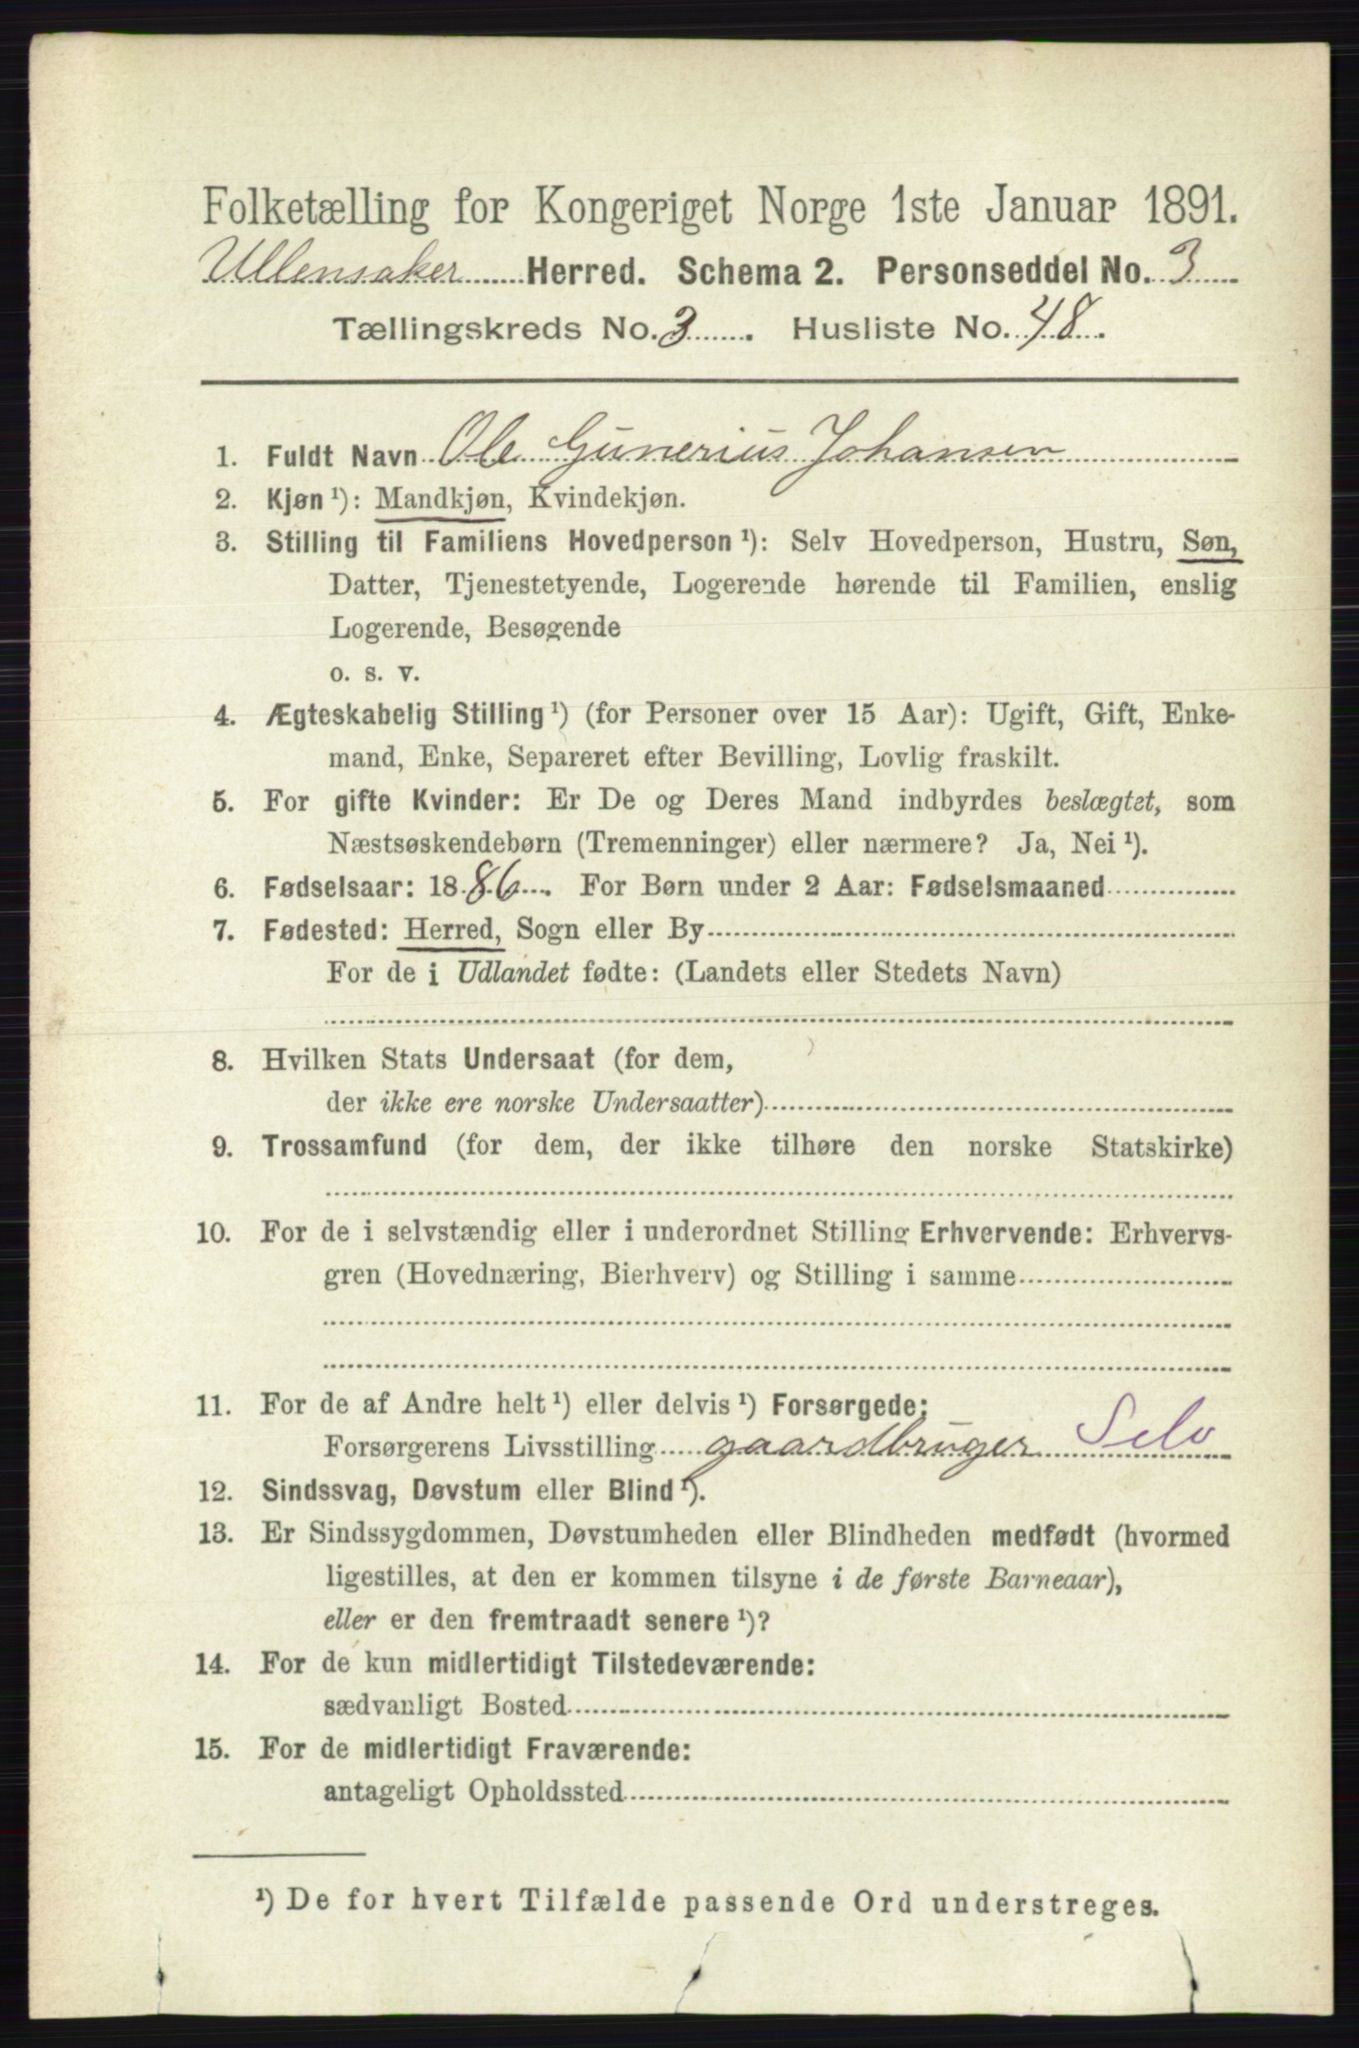 Folketælling for Kongeriget Norge 1ste Januar 1891.
Ullensaker Herred. Schema 2. Personseddel No. 3
Tællingskreds No. 3. Husliste No. 48.
1. Fuldt Navn Ole Gunerius Johansen
2. Kjøn ¹): Mandkjøn, Kvindekjøn.
3. Stilling til Familiens Hovedperson ¹): Selv Hovedperson, Hustru, Søn,
Datter, Tjenestetyende, Logerende hørende til Familien, enslig
Logerende, Besøgende
o. s. v.
4. Ægteskabelig Stilling ¹) (for Personer over 15 Aar): Ugift, Gift, Enke-
mand, Enke, Separeret efter Bevilling, Lovlig fraskilt.
5. For gifte Kvinder: Er De og Deres Mand indbyrdes beslægtet, som
Næstsøskendebørn (Tremenninger) eller nærmere? Ja, Nei ¹).
6. Fødselsaar: 1886. For Børn under 2 Aar: Fødselsmaaned
7. Fødested: Herred, Sogn eller By
For de i Udlandet fødte: (Landets eller Stedets Navn)
8. Hvilken Stats Undersaat (for dem,
der ikke ere norske Undersaatter)
9. Trossamfund (for dem, der ikke tilhøre den norske Statskirke)
10. For de i selvstændig eller i underordnet Stilling Erhvervende: Erhvervs-
gren (Hovednæring, Bierhverv) og Stilling i samme
11. For de af Andre helt ¹) eller delvis ¹) Forsørgede:
Forsørgerens Livsstilling gaardbruger Selv
12. Sindssvag, Døvstum eller Blind ¹).
13. Er Sindssygdommen, Døvstumheden eller Blindheden medfødt (hvormed
ligestilles, at den er kommen tilsyne i de første Barneaar),
eller er den fremtraadt senere ¹)?
14. For de kun midlertidigt Tilstedeværende:
sædvanligt Bosted
15. For de midlertidigt Fraværende:
antageligt Opholdssted
¹) De for hvert Tilfælde passende Ord understreges.